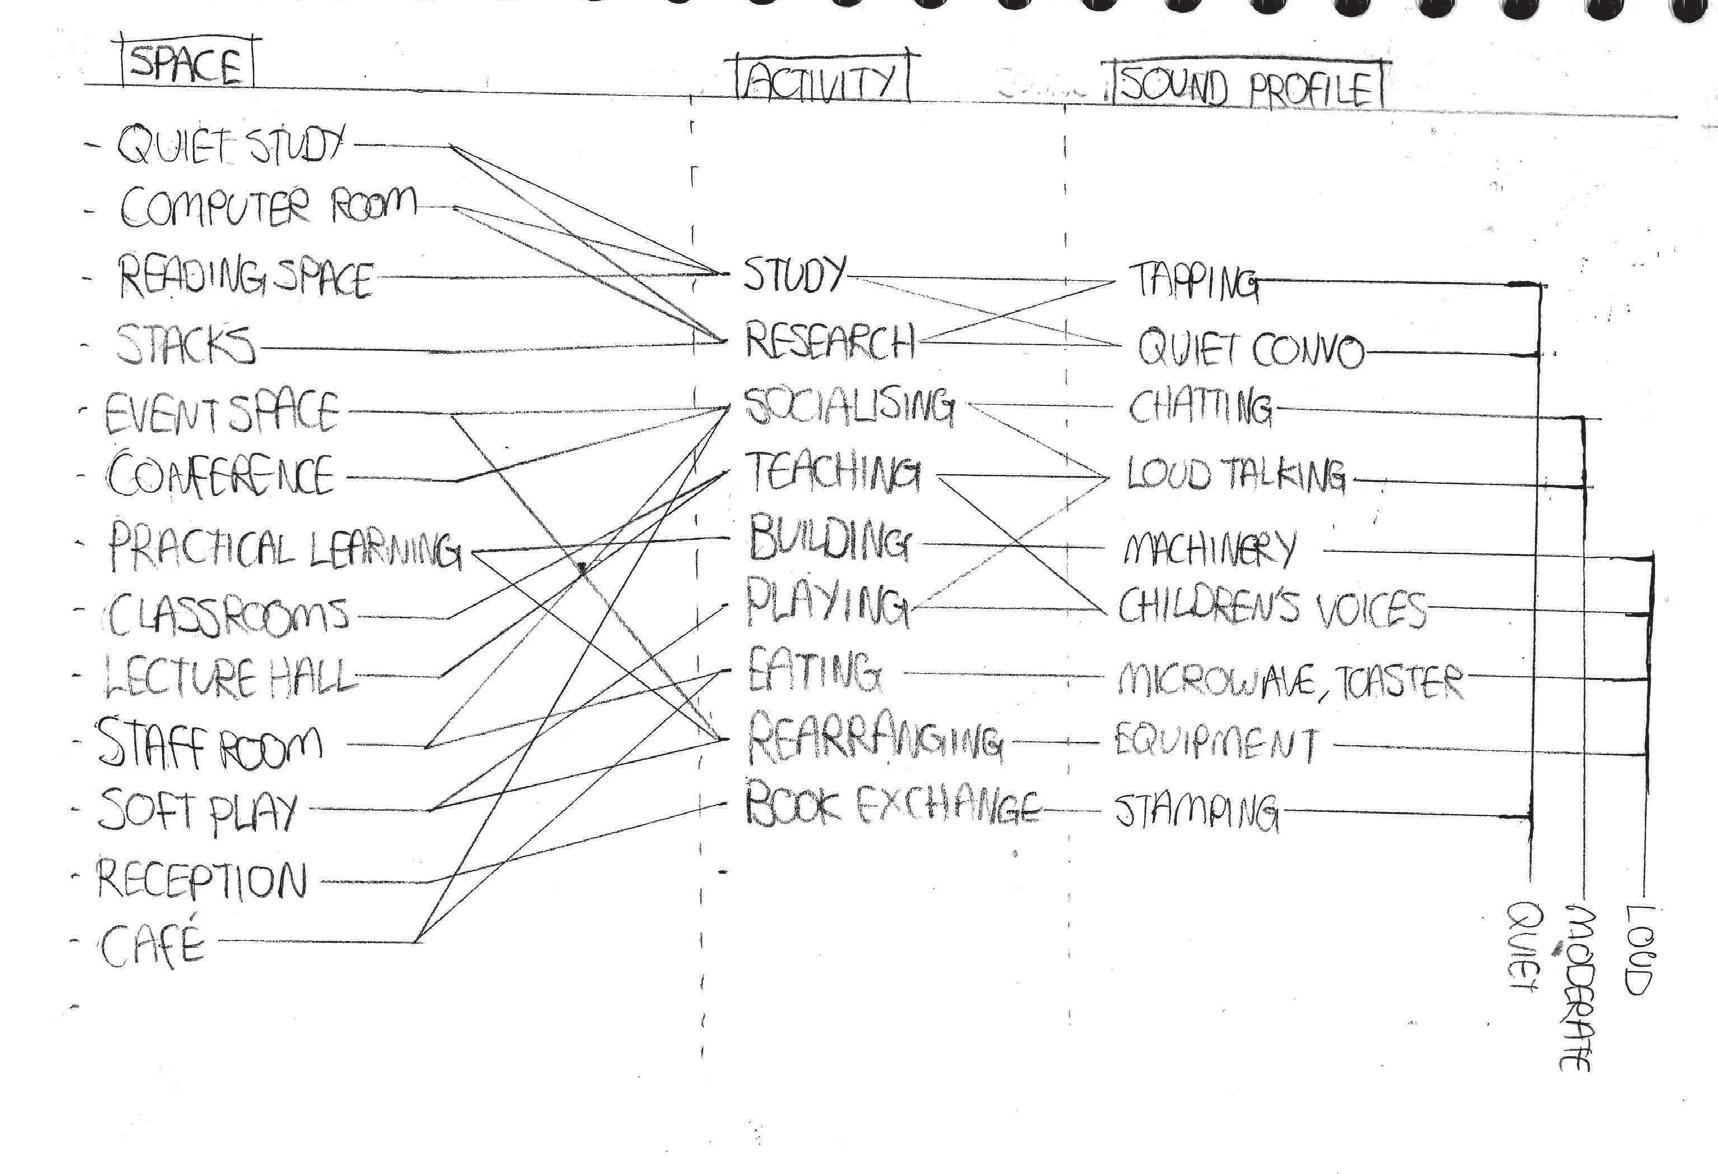 SPACE
ACTIVITY
SOUND PROFILE
- QUIET STUDY
- COMPUTER ROOM
- READING SPACE
- STACKS
- EVENT SPACE
- CONFERENCE
- PRACTICAL LEARNING
- CLASSROOMS
- LECTURE HALL
- STAFF ROOM
- SOFT PLAY
- RECEPTION
- CAFÉ
-
STUDY
RESEARCH
SOCIALISING
TEACHING
BUILDING
PLAYING
EATING
REARRANGING
BOOK EXCHANGE
TAPPING
QUIET CONVO
CHATTING
LOUD TALKING
MACHINERY
CHILDREN'S VOICES
MICROWAVE, TOASTER
EQUIPMENT
STAMPING
QUIET
MODERATE
LOUD